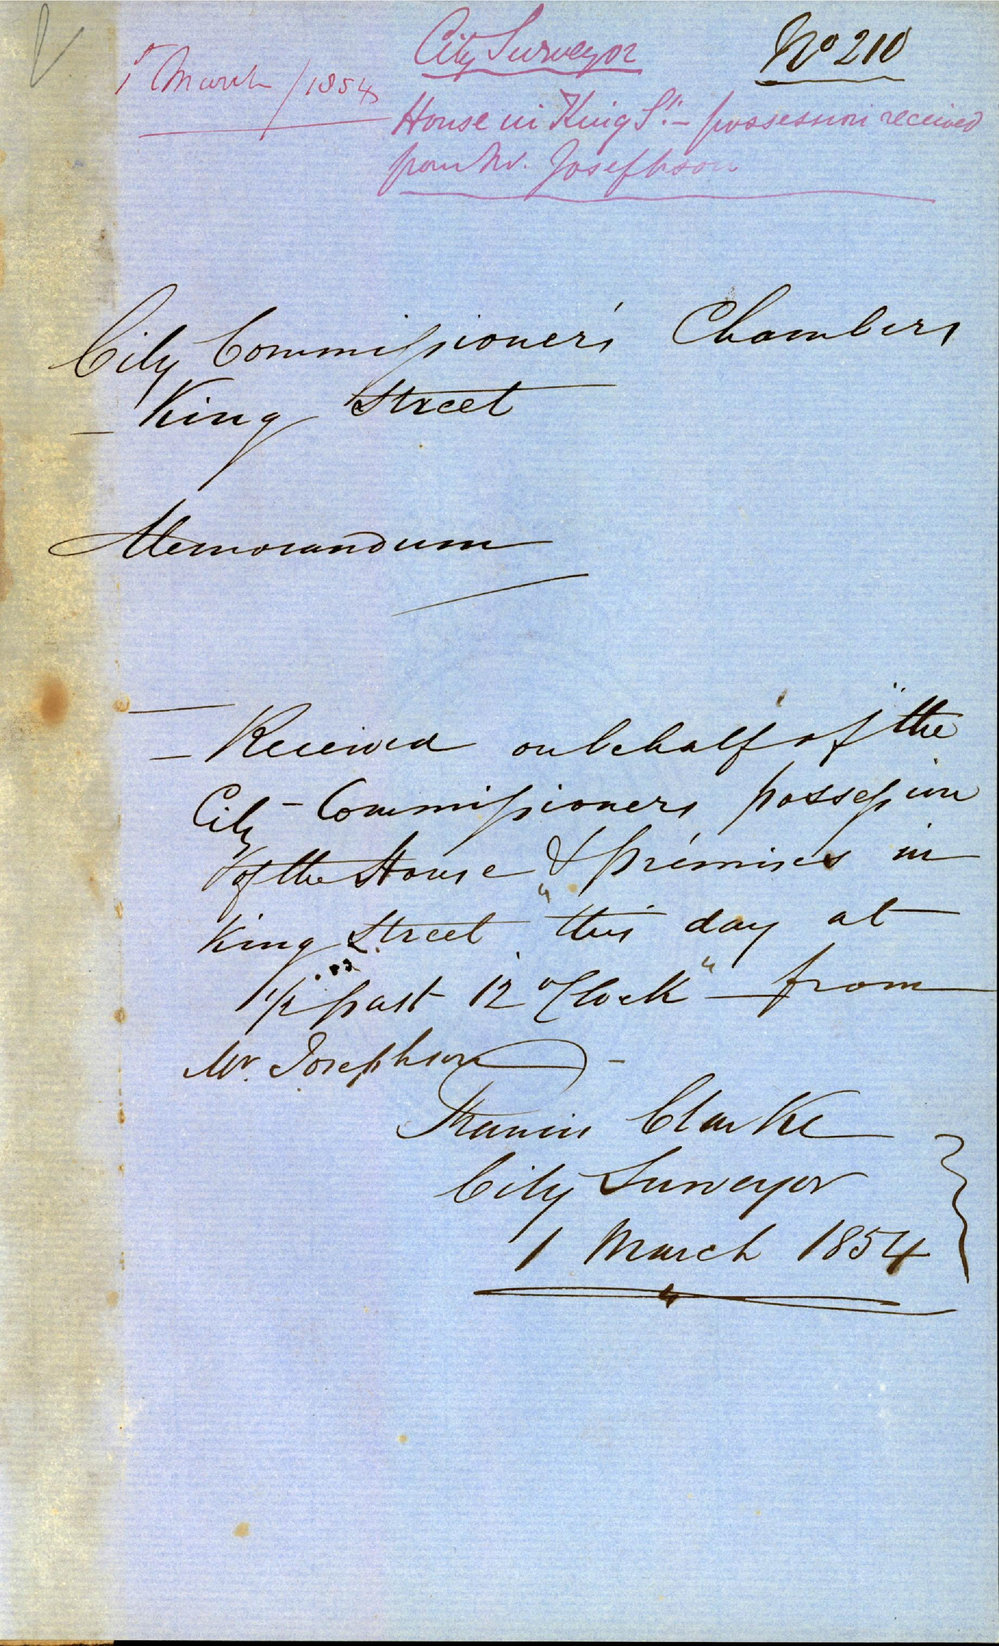 City Surveyor
No 210
1st March / 1854
House in King St. - possession received
from Mr. Josephson
City Commissioner's Chambers
King Street
Memorandum
Received on behalf of the
City - Commissioners possession
of the House & premises in
King Street "this day at
1/2 past 12 o'Clock" - from
Mr. Josephson -
Francis Clarke
City Surveyor
1 March 1854